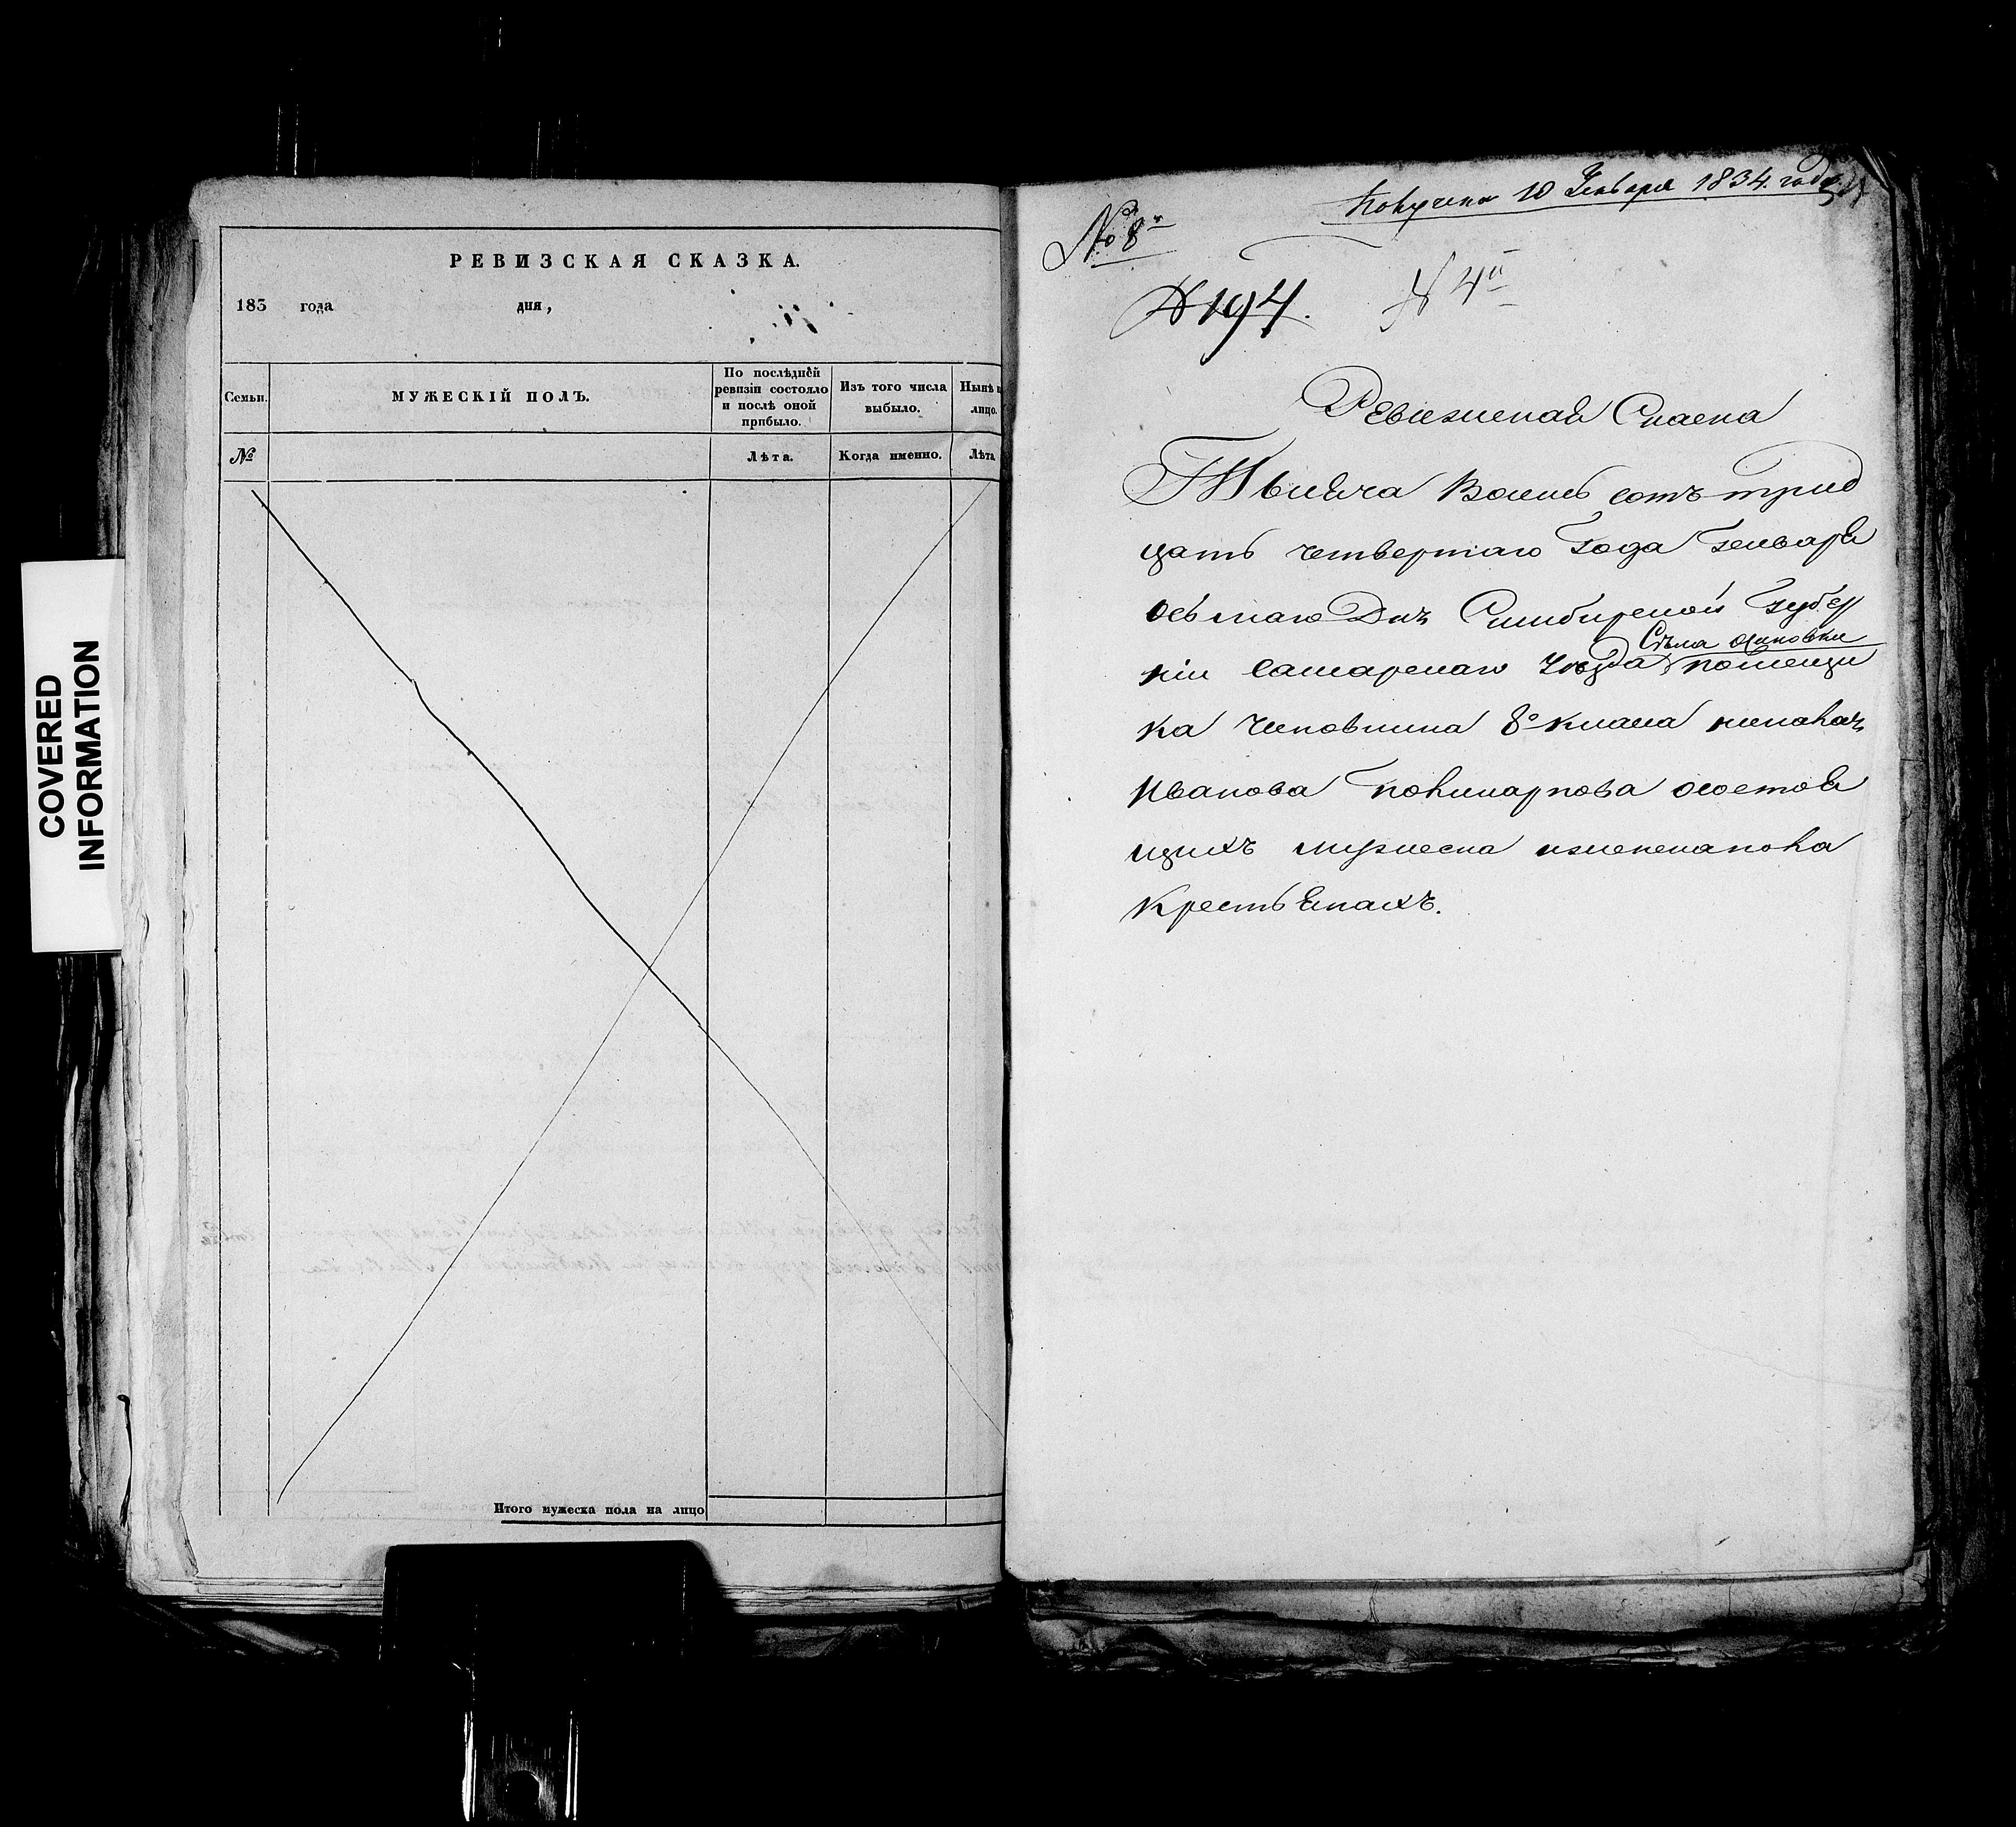 COVERED
INFORMATION
РЕВИЗСКАЯ СКАЗКА.
183 года дня,
Семьи.
МУЖЕСКІЙ ПОЛЪ.
По послѣдней
ревизіи состояло
и послѣ оной
прибыло.
Изъ того числа
выбыло.
Нынѣ
лицо.
№
Лѣта.
Когда именно.
Лѣта
Итого мужеска пола на лицо
Получена 10 Генваря 1834. года
№ 8й
№ 194.
№ 4й
Ревизская Скаска
Тысяча восемь сотъ трид
цать четвертаго Года Генваря
осьмаго Дня Симбирской Губер
Села Осиновки
ніи Самарскаго Уѣзда помещи
ка Чиновника 8го класа
Иванова осостоя
щихъ мужеска иженскапола
крестьянахъ.